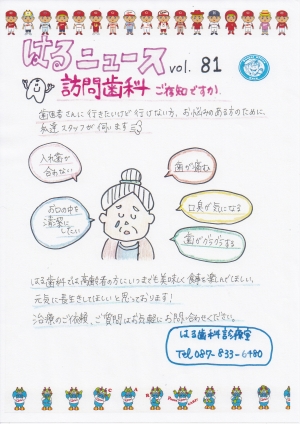 はるニュース vol. 81
訪問歯科 ご存知ですか
歯医者さんに行きたいけど行けない方、お悩みのある方のために、
私達スタッフが伺います
入れ歯が
合わない
歯が痛む
お口の中を
清潔に
したい
口臭が気になる
歯がグラグラする
はる歯科では高齢者の方にいつまでも美味しく食事を楽しんでほしい。
元気に長生きしてほしいと思っております!
治療のご依頼、ご質問はお気軽にお問い合わせください。
はる歯科診療室
Tel 087-833-6480